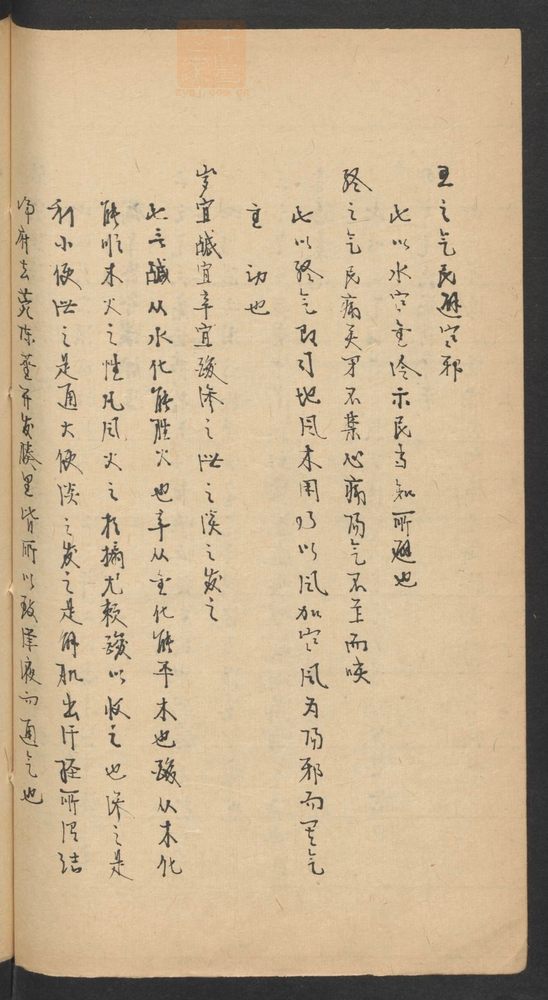 五之气民避寒邪
此以水寒金冷示民当知所避也
终之气民病关闭不禁心痛阳气不至而咳
此以终气即司地风木用乃以风加寒风为阳邪而寒气
主动也
岁宜咸宜辛宜酸渗之泄之渍之发之
此言咸从水化能胜火也辛从金化能平木也酸从木化
能顺木火之性凡风火之相搏尤赖酸以收之也渗之是
利小便泄之是通大便渍之发之是解肌出汗经所谓结
净府去菀陈莝开发腠理皆所以致津液而通气也